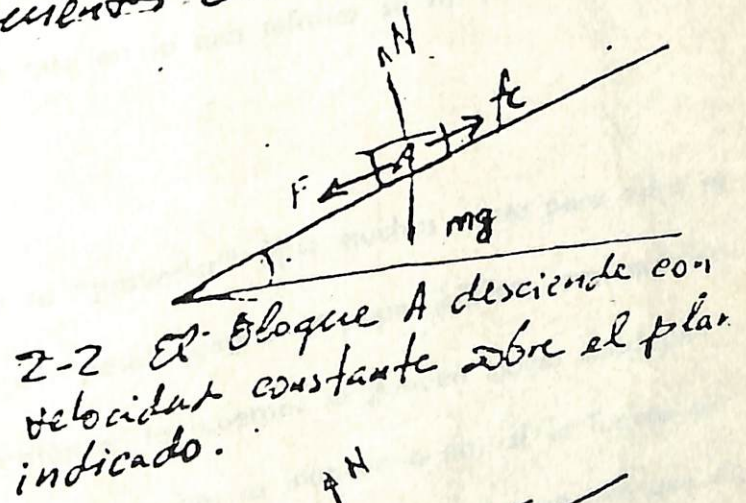 N
fc
A
F
mg
2-2 El Bloque A desciende con
velocidad constante sobre el plan
indicado.
N